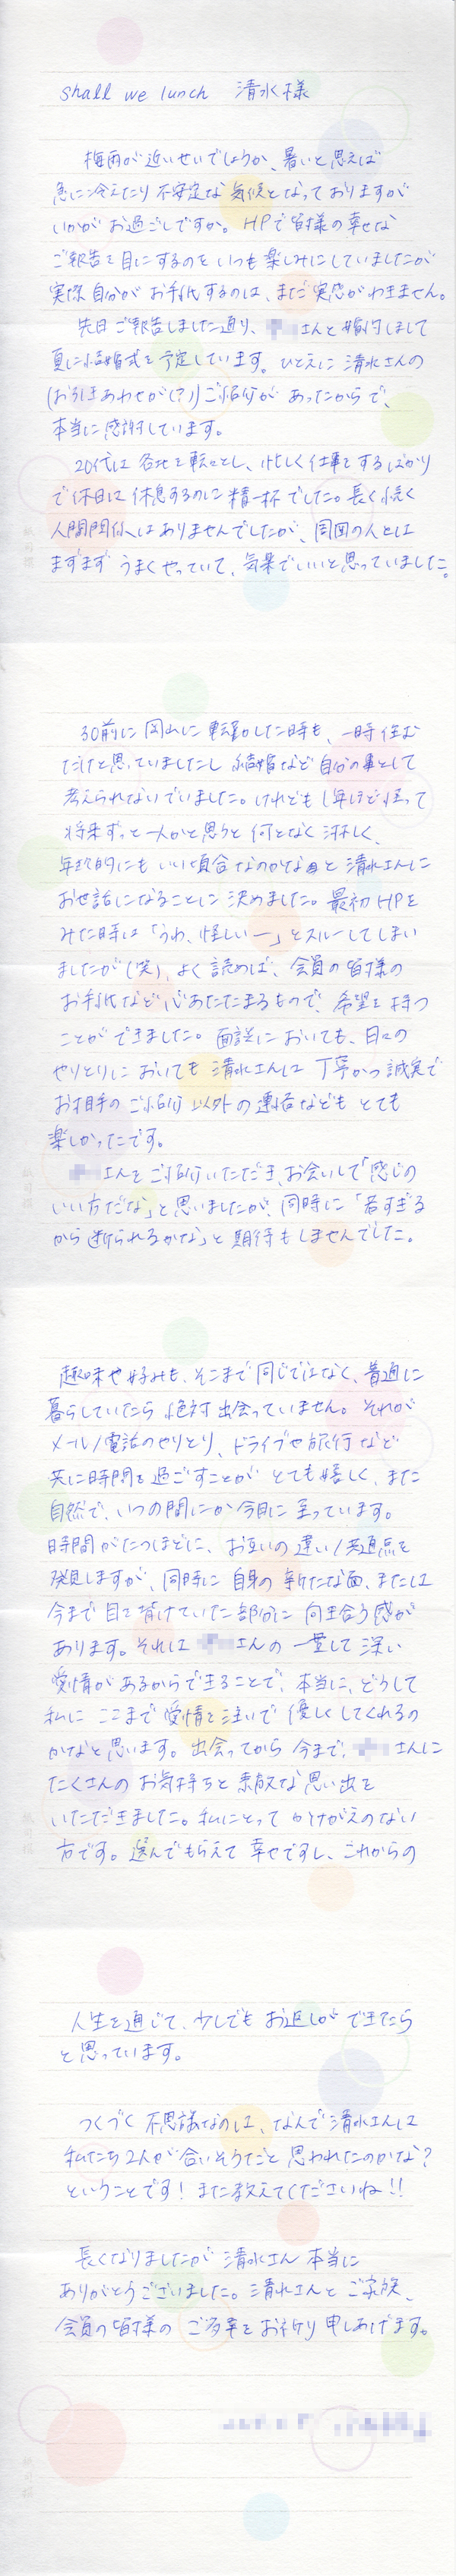 shall we lunch 清水様
梅雨が近いせいでしょうか、暑いと思えば
急に冷えたり不安定な気候となっておりますが
いかがお過ごしですか。HPで皆様の幸せな
ご報告を目にするのをいつも楽しみにしていましたが
実際自分がお手紙するのは、まだ実感がわきません。
先日ご報告しました通り、さんと婚約しまして
夏に結婚式を予定しています。ひとえに清水さんの
(お引きあわせが(?))ご紹介があったからで、
本当に感謝しています。
20代は各地を転々とし、忙しく仕事をするばかり
で休日は休息するのに精一杯でした。長く続く
人間関係はありませんでしたが、周囲の人とは
まずまずうまくやっていて、気楽でいいと思っていました。
30前に岡山に転勤した時も、一時住む
だけと思っていましたし結婚など自分の事として
考えられないでいました。けれども1年ほど経って
将来ずっと一人かと思うと何となく淋しく、
年齢的にもいい頃合なのかなと清水さんに
お世話になることに決めました。最初HPを
みた時は「うわ、怪しいー」とスルーしてしまい
ましたが(笑)、よく読めば、会員の皆様の
お手紙など心あたたまるもので、希望を持つ
ことができました。面談においても、日々の
やりとりにおいても清水さんは丁寧かつ誠実で
お相手のご紹介以外の連絡などもとても
楽しかったです。
さんをご紹介いただき、お会いして「感じの
いい方だな」と思いましたが、同時に「若すぎる
から断られるかな」と期待もしませんでした。
趣味や好みも、そこまで同じではなく、普通に
暮らしていたら絶対出会っていません。それが
メール/電話のやりとり、ドライブや旅行など
共に時間を過ごすことがとても嬉しく、また
自然で、いつの間にか今日に至っています。
時間がたつほどに、お互いの違い/共通点を
発見しますが、同時に自身の新たな面、または
今まで目を背けていた部分に向き合う感が
あります。それはさんの一貫して深い
愛情があるからできることで、本当に、どうして
私にここまで愛情を注いで優しくしてくれるの
かなと思います。出会ってから今まで、さんに
たくさんのお気持ちと素敵な思い出を
いただきました。私にとってかけがえのない
方です。選んでもらえて幸せですし、これからの
人生を通じて、少しでもお返しができたら
と思っています。
つくづく不思議なのは、なんで清水さんは
私たち2人が合いそうだと思われたのかな?
ということです!また教えてくださいね!!
長くなりましたが清水さん本当に
ありがとうございました。清水さんとご家族、
会員の皆様のご多幸をお祈り申しあげます。